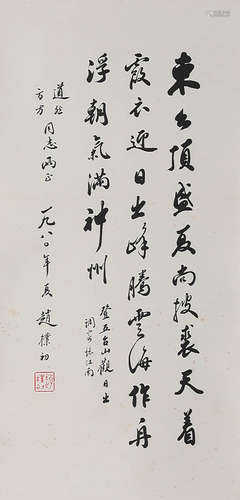 東臺頂盛夏尚披裘天着
霞衣迎日出峰騰雲海作舟
浮朝氣滿神州
登五台山觀日出
調寄憶江南
方方
同志兩正
一九八〇年夏 趙樸初